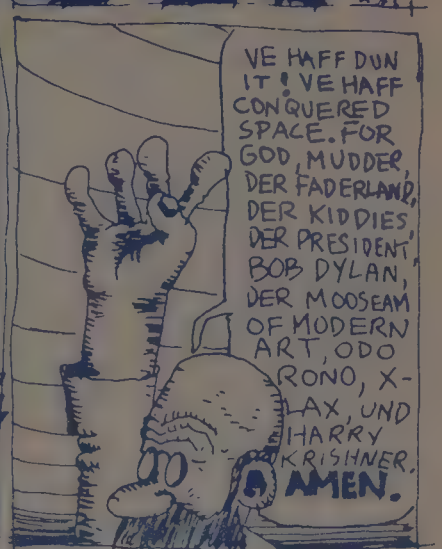 VE HAFF DUN
IT! VE HAFF
CONQUERED
SPACE. FOR
GOD, MUDDER,
DER FADERLAND,
DER KIDDIES,
DER PRESIDENT,
BOB DYLAN,
DER MOOSEAM
OF MODERN
ART, ODO
RONO, X-
LAX, UND
HARRY
KRISHNER.
A AMEN.